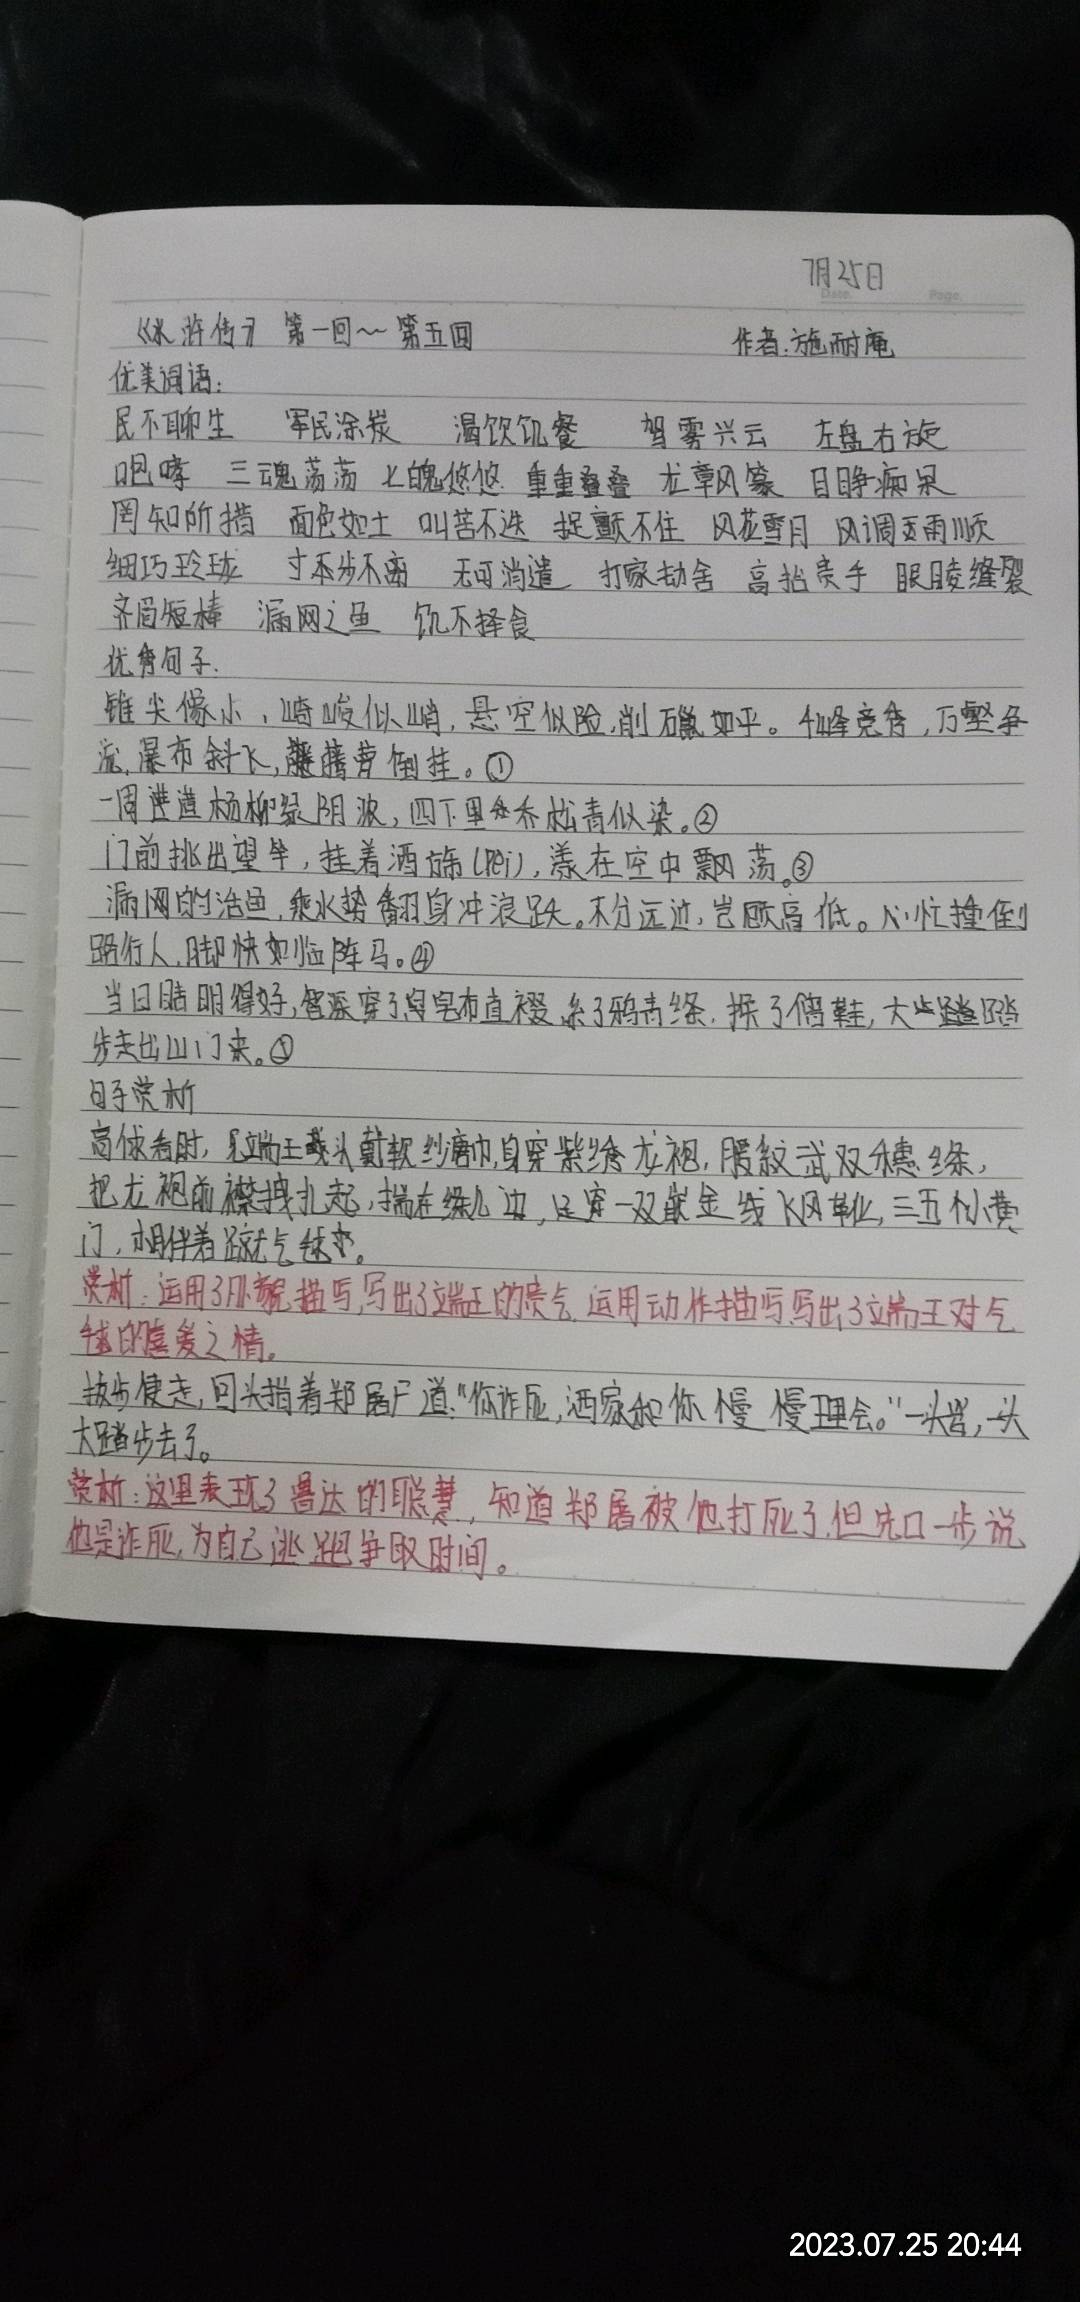 7月25日
Date. Page.
《水浒传》 第一回~第五回 作者:施耐庵
优美词语:
民不聊生 军民涂炭 渴饮饥餐 驾雾兴云 左盘右旋
咆哮 三魂荡荡 七魄悠悠 重重叠叠 龙章凤篆 目睁痴呆
罔知所措 面色如土 叫苦不迭 捉颤不住 风花雪月 风调雨顺
细巧玲珑 寸步不离 无可消遣 打家劫舍 高抬贵手 眼睖缝裂
齐眉短棒 漏网之鱼 饥不择食
优秀句子.
锥尖像小,崎峻似峭,悬空似险,削礲如平。千峰竞秀,万壑争
流,瀑布斜飞,藤萝倒挂。①
一周遭杨柳绿阴浓,四下里乔松青似染。②
门前挑出望竿,挂着酒旆(pèi),漾在空中飘荡。③
漏网的活鱼,乘水势翻身冲浪跃。不分远近,岂顾高低。心忙撞倒
路行人,脚快如临阵马。④
当日晴明得好,智深穿了皂布直裰,系了鸦青绦,换了僧鞋,大踏
步走出山门来。⑤
句子赏析
高俅看时,见端王头戴软纱唐巾,身穿紫绣龙袍,腰系文武双穗绦,
把龙袍前襟拽扎起,揣在绦儿边,足穿一双嵌金线飞凤靴,三五个小黄
门,相伴着蹴气毬。
赏析:运用了外貌描写,写出了端王的贵气,运用动作描写写出了端王对气
毬的喜爱之情。
拔步便走,回头指着郑屠尸道:"你诈死,洒家和你慢慢理会。"一头骂,一头
大踏步去了。
赏析:这里表现了鲁达的聪慧,知道郑屠被他打死了但先口一步说
他是诈死,为自己逃跑争取时间。
2023.07.25 20:44